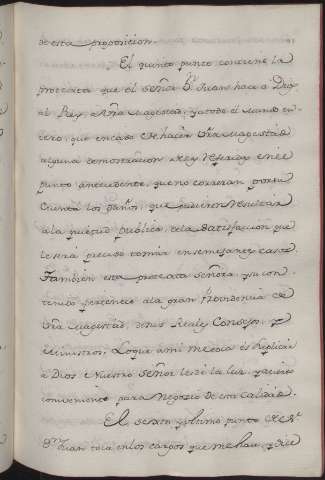 de esta proposicion.
El quinto punto contiene la
protexta que el señor Dn. Juan hace a Dios
al Rey, a Vŕa Magestad, y a todo el Mundo en-
tero, que en caso de hacer Vŕa Magestad
alguna demostracion referida en el
punto antecedente, que no correran por su
cuenta los daños, que pudieren resultar
a la quietud publica, de la satisfacion que
le será preciso tomar en semejante caso.
Tambien esta protexta Señora, y su con-
tenido pertenece ala gran Providencia de
Vŕa Magestad, de sus Reales Consejos, y
Ministros. Lo que a mi me toca és suplicar
a Dios Nuestro Señor les dé la luz, y acierto
conveniente para Negocio de esta calidad.
El sexto y ultimo punto del Sr.
Dn. Juan toca en los cargos que me hace, y dice